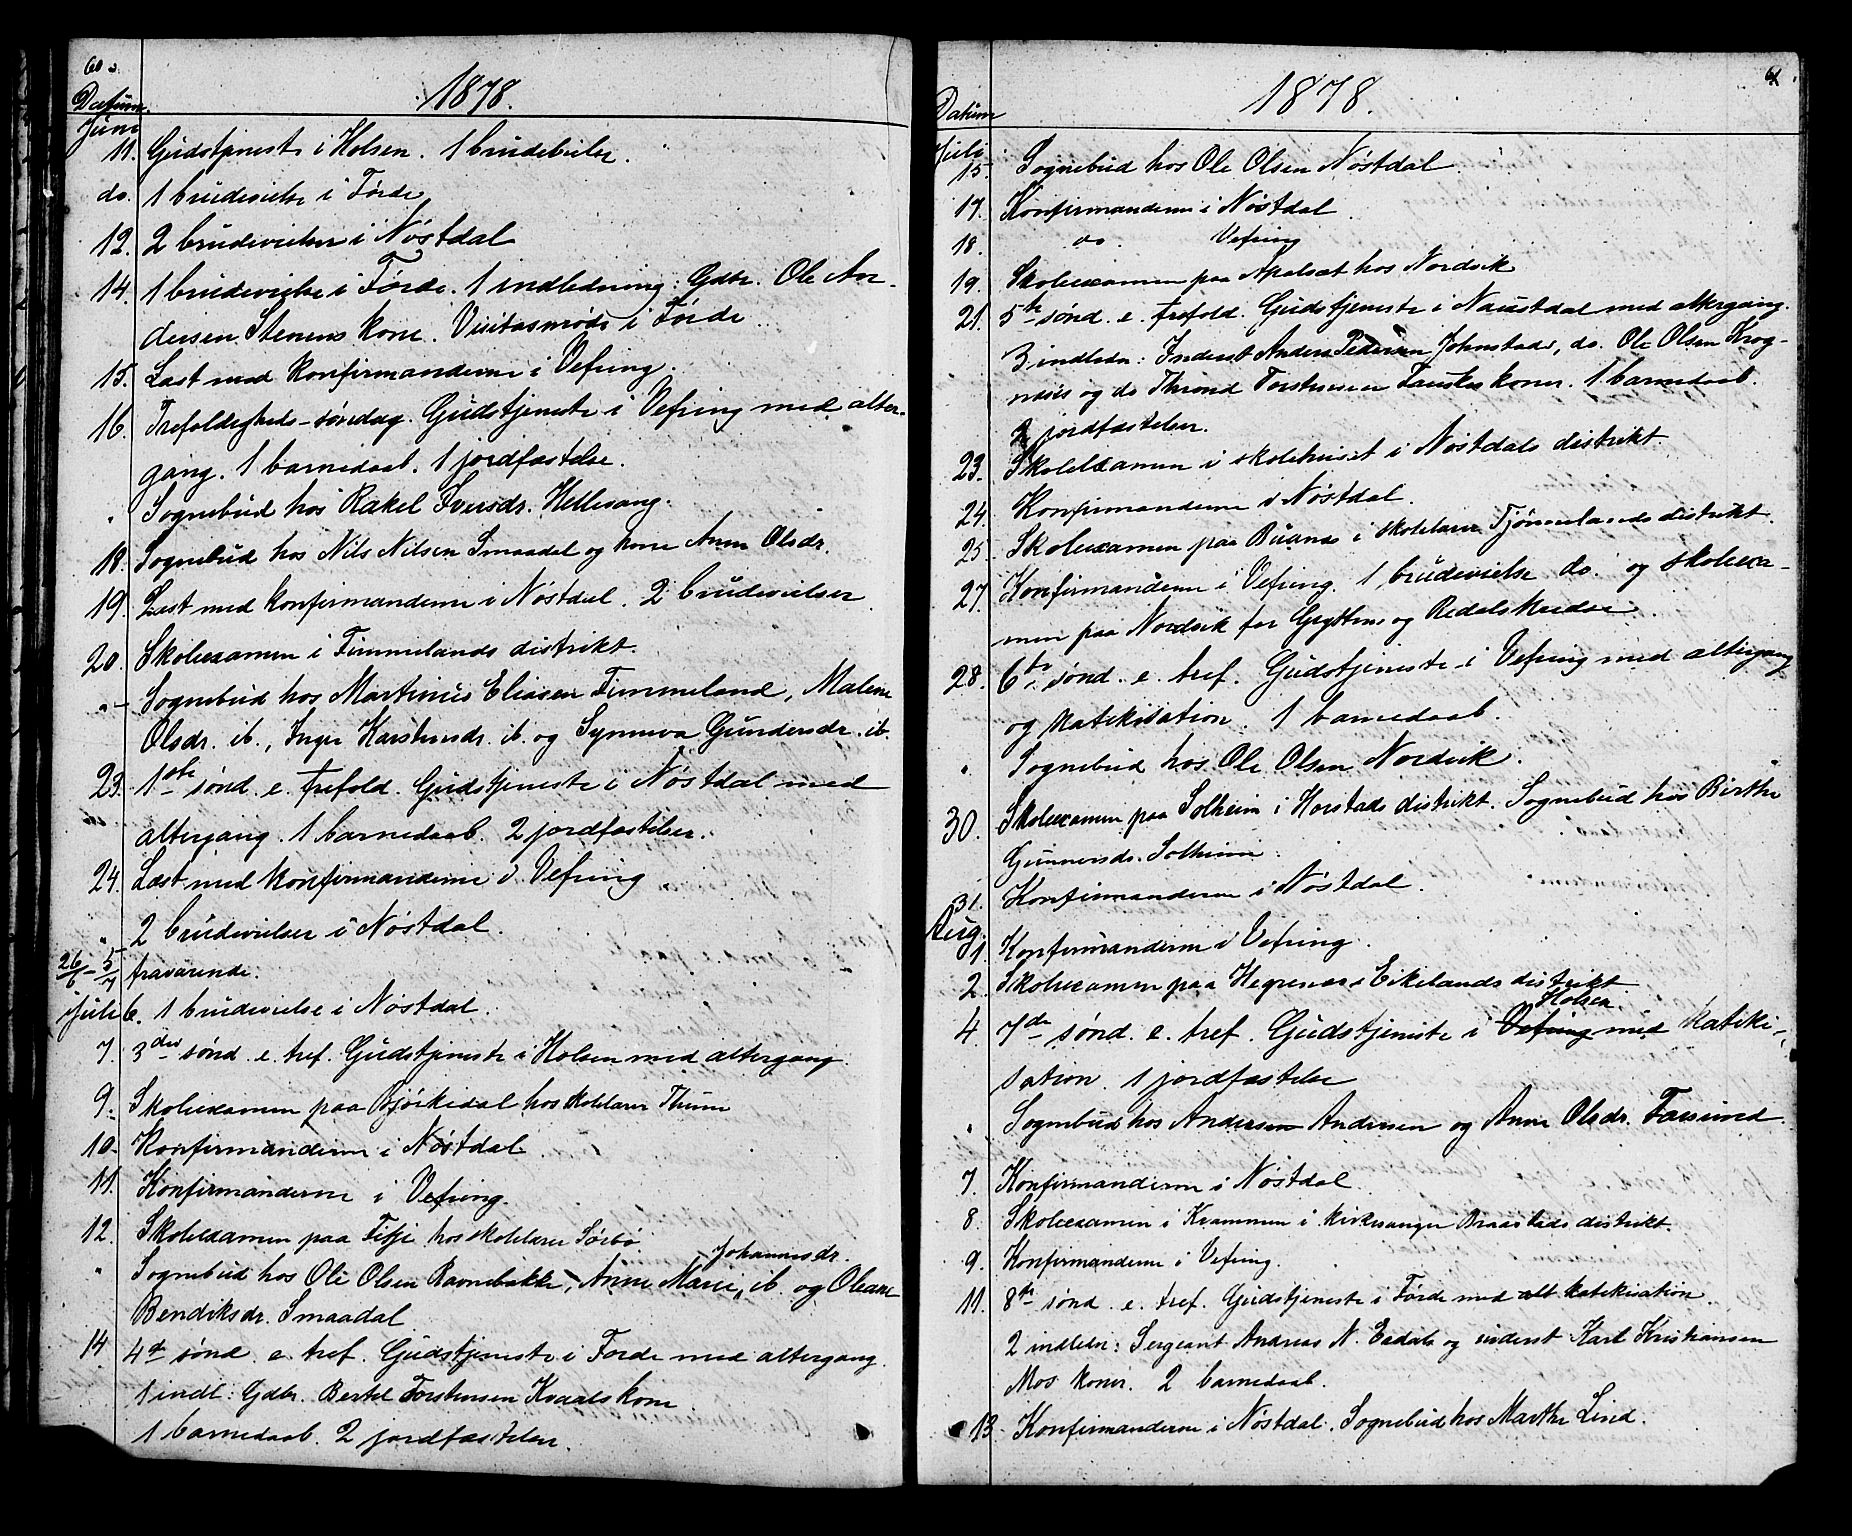 60
Datum.
1878.
Juni
11. Gudstjeneste i Holsen. 1 brudevielse.
do. 1 brudevielse i Førde
12. 2 brudevielser i Nøstdal
14. 1 brudevielse i Førde. 1 indledning: Gdbr. Ole An-
dersen Stenens kone. Visitasmøde i Førde
15. Læst med konfirmanderne i Vefring.
16. Trefoldigheds-søndag. Gudstjeneste i Vefring med alter-
gang. 1 barnedaab. 1 jordfæstelse.
" Sognebud hos Rakel Iversdr. Hellevang.
18. Sognebud hos Nils Nilsen Smaadal og kone Anne Olsdr.
19. Læst med konfirmanderne i Nøstdal. 2 brudevielser
20. Skoleexamen i Timmelands distrikt.
" Sognebud hos Martinus Eliasen Timmeland, Malene
Olsdr. ib., Inger Karstensdr. ib. og Synneva Gundersdr. ib.
23. 1ste sønd. e. trefold. Gudstjeneste i Nøstdal med
altergang. 1 barnedaab. 2 jordfæstelser.
24. Læst med konfirmanderne i Vefring
" 2 brudevielser i Nøstdal.
26/6 - 5/7 fraværende.
Juli 6. 1 brudevielse i Nøstdal.
7. 3die sønd. e. tref. Gudstjeneste i Holsen med altergang.
9. Skoleexamen paa Bjørkedal hos skolelærer Thune
10. Konfirmanderne i Nøstdal.
11. Konfirmanderne i Vefring.
12. Skoleexamen paa Fitje hos skolelærer Sørbø.
Johannesdr.
" Sognebud hos Ole Olsen Ravnebakke, Anne Marie, ib. og Oleane
Bendiksdr. Smaadal
14 4de sønd. e. tref. Gudstjeneste i Førde med altergang.
1 indl: Gdbr. Bertel Torstensen Kvaals kone
1 barnedaab. 2 jordfæstelser.
61
Datum
1878.
Juli
15. Sognebud hos Ole Olsen Nøstdal.
17. Konfirmanderne i Nøstdal
18. do. Vefring
19. Skoleexamen paa Apalset hos Nordvik
21. 5te sønd. e. trefold. Gudstjeneste i Naustdal med altergang.
3 indledn: Inderst Anders Pedersen Johnstad, do. Ole Olsen Krog-
næs og do Thrond Torstensen Fauskes koner. 1 barnedaab.
2 jordfæstelser.
23. Skoleexamen i skolehuset i Nøstdals distrikt.
24. Konfirmanderne i Nøstdal.
25. Skoleexamen paa Buanes i skolelærer Tjønnelands distrikt.
27. Konfirmanderne i Vefring. 1 brudevielse do. og skoleexa-
men paa Nordvik for Gryttens og Redalskreds
28. 6te sønd. e. tref. Gudstjeneste i Vefring med altergang
og katekisation. 1 barnedaab.
" Sognebud hos Ole Olsen Nordvik.
30. Skoleexamen paa Solheim i Horstads distrikt. Sognebud hos Birthe
Gunnersdr. Solheim
31. Konfirmanderne i Nøstdal.
Aug.
1. Konfirmanderne i Vefring.
2. Skoleexamen paa Hegrenes i Eikelands distrikt
Holsen
4 7de sønd. e. tref. Gudstjeneste i Vefring med kateki-
sation. 1 jordfæstelse
" Sognebud hos Andersen Andersen og Anne Olsdr. Farsund.
7. Konfirmanderne i Nøstdal.
8. Skoleexamen i Kvammen i kirkesanger Braastads distrikt.
9. Konfirmanderne i Vefring.
11. 8de sønd. e. tref. Gudstjeneste i Førde med alt katekisation.
2 indledn: Sergeant Andreas N. Erdals og inderst Karl Kristiansen
Mos koner. 2 barnedaab.
13 Konfirmanderne i Nøstdal. Sognebud hos Marthe Lind.